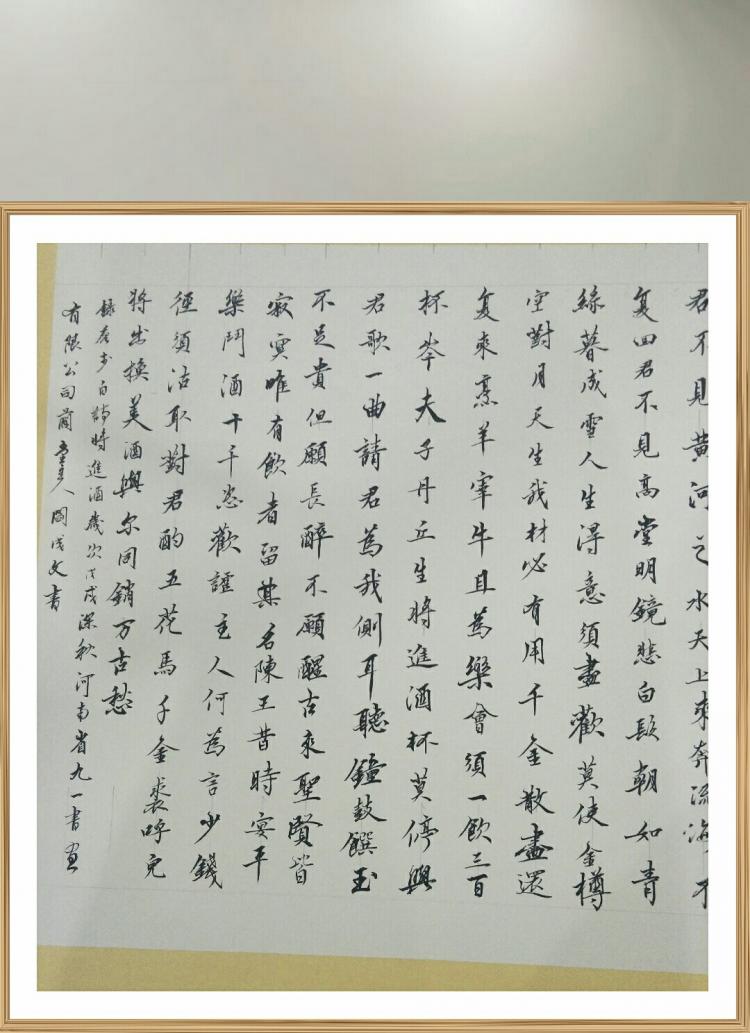 君不見黃河之水天上來奔流海不
复回君不見高堂明鏡悲白髮朝如青
絲暮成雪人生得意須盡歡莫使金樽
空對月天生我材必有用千金散盡還
复來烹羊宰牛且為樂會須一飲三百
杯岑夫子丹丘生將進酒杯莫停與
君歌一曲請君為我側耳聽鐘鼓饌玉
不足貴但願長醉不願醒古來聖賢皆
寂寞唯有飲者留其名陳王昔時宴平
樂鬥酒十千恣歡謔主人何為言少錢
徑須沽取對君酌五花馬千金裘呼兒
將出換美酒與尔同銷万古愁
錄李白詩將進酒歲次戊戌深秋河南省九一書画
有限公司蘭堂主人閻成文書